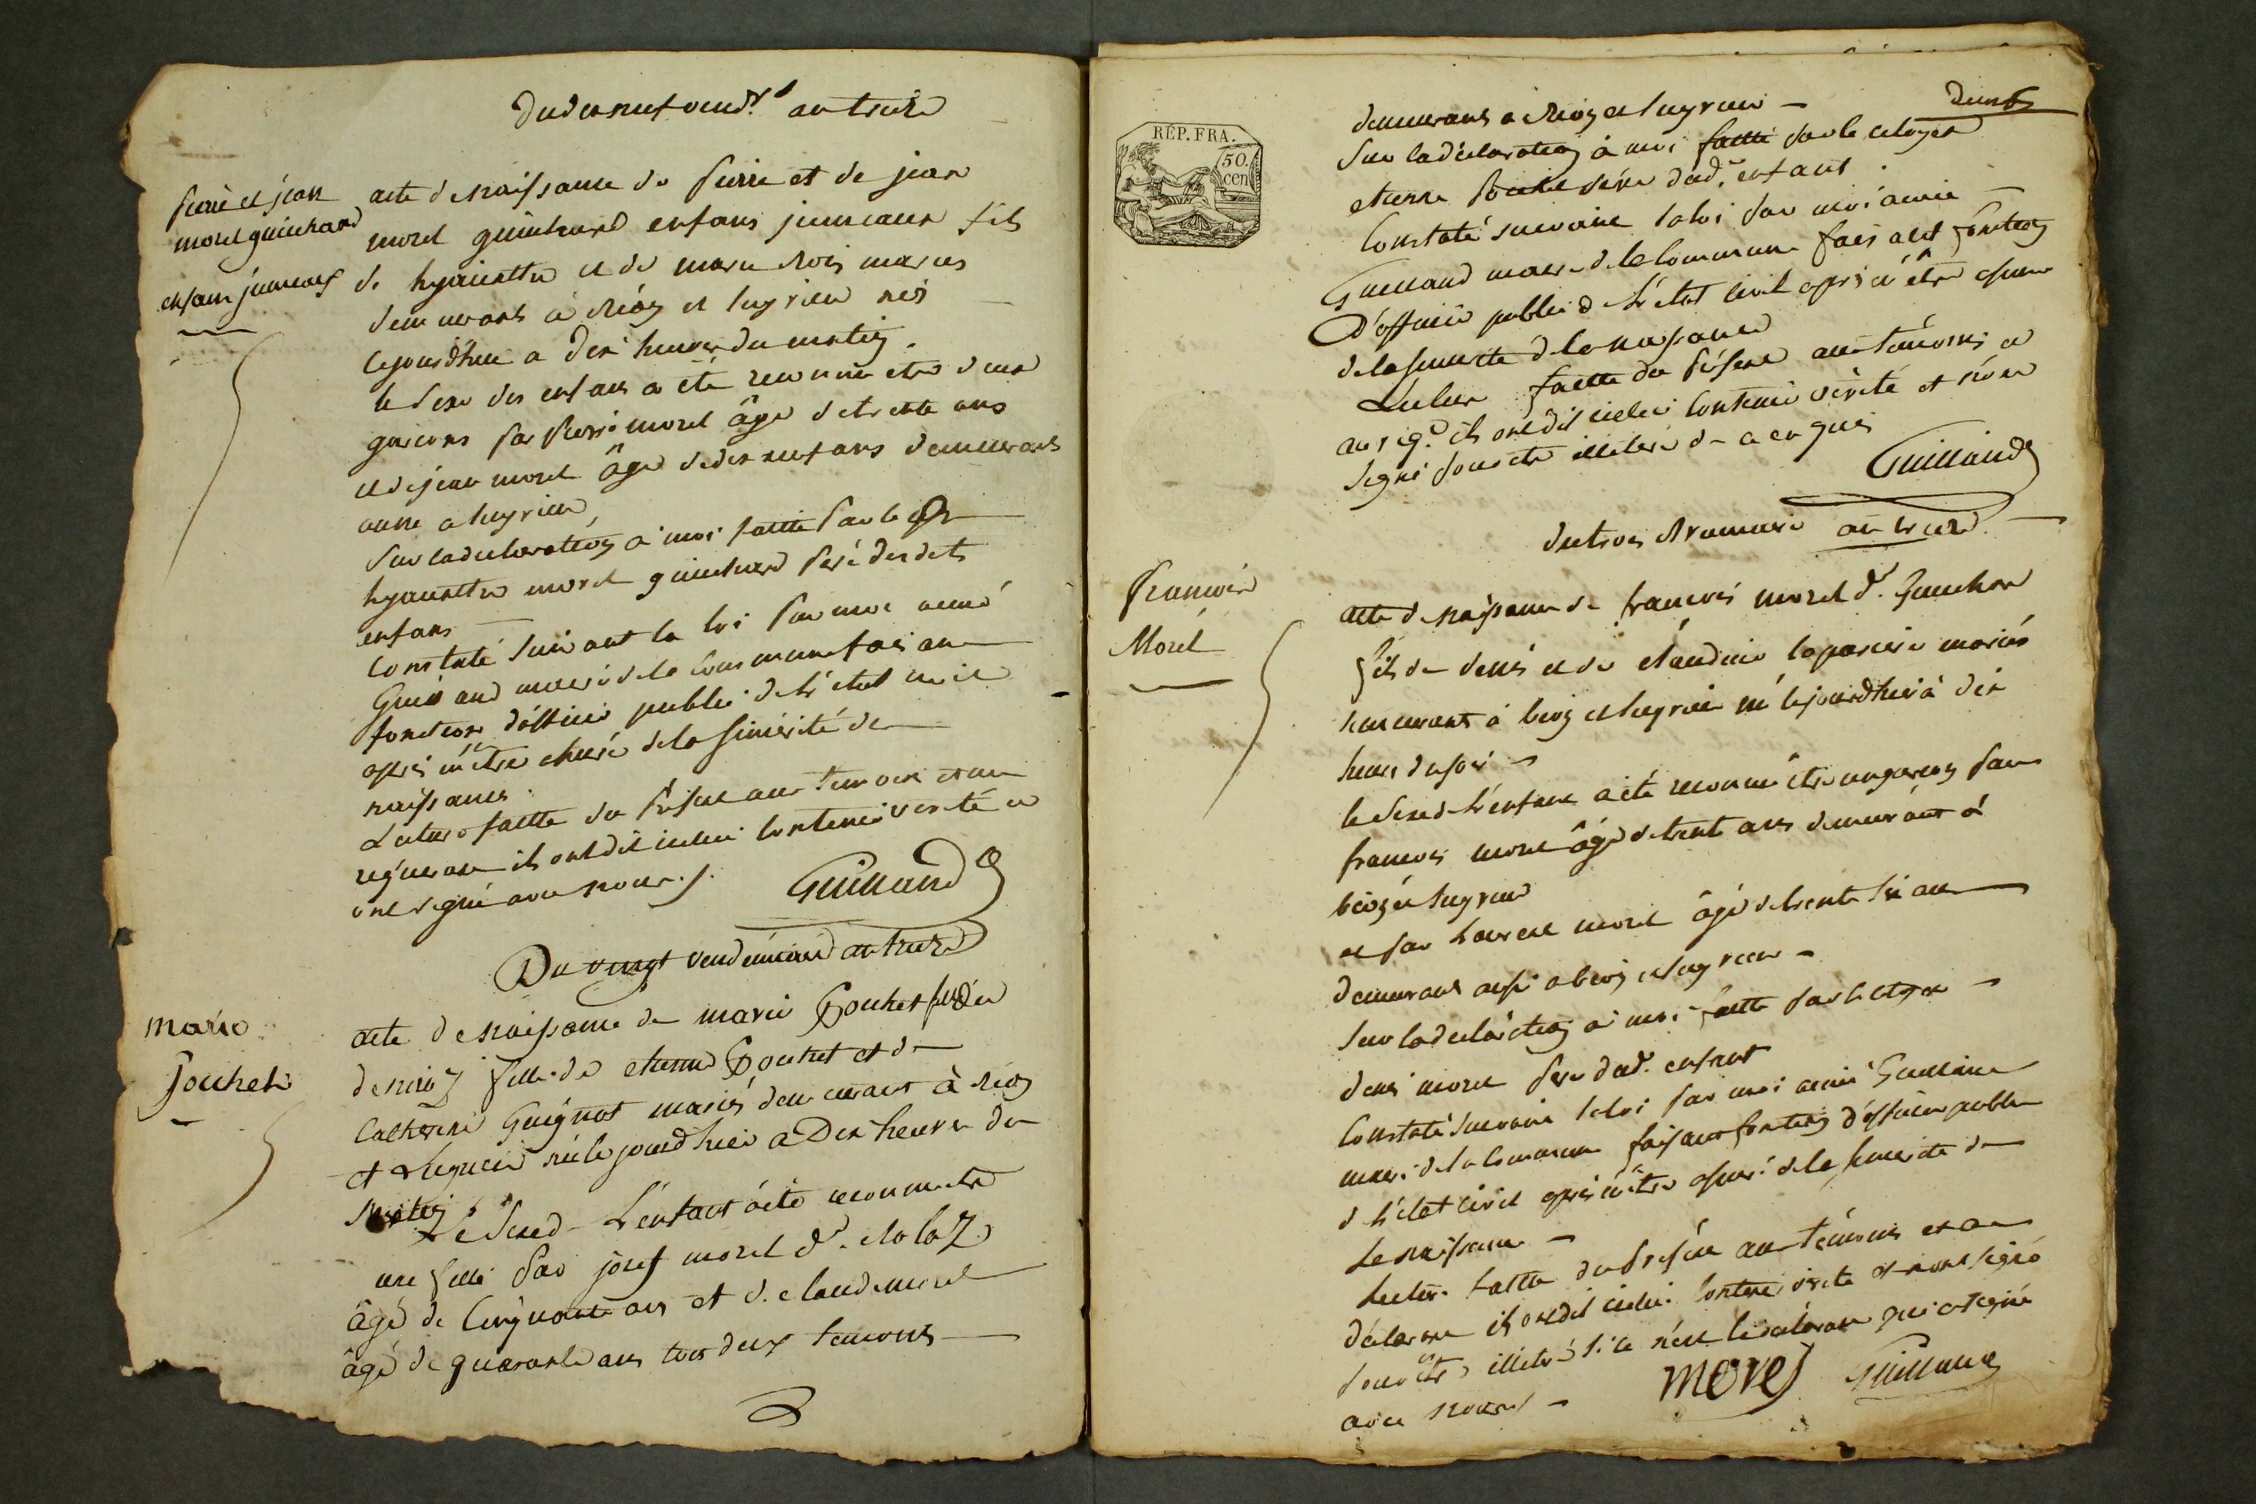 Du dix neuf vend.re an treize
pierre et jean
morel guichard
enfans jumeaux
acte de naissance de pierre et de jean
morel guichard enfans jumeaux fils
de hyacinthe et de marie mariés
demeurants à et leyrieu nés
cejourdhui a dix heures du matin.
le sexe des enfans a été reconnu etre deux
garcons par pierre morel âgé de trente ans
et de jean morel âgé de dix neuf ans demeurants
a leyrieu
Sur la declaration à moi faitte par le
hyacinthe morel guichard peré desdits
enfans
Constaté suivant la loi par moi aimé
Guillaud maire de la commune faisant
fonction d'officier public de l'etat civil
après m'être assuré de la sincérité de
naissances.
Lecture faitte du present aux temoins et au
requerant ils ont dit icelui contenir verité et
ont signé avec nous.
Guillaud
Du vingt vendémiaire an treize
marie
pochet
acte de naissance de marie pochet
fille de etienne pochet et de
Catherine Guignot mariés demeurant à
et Leyrieu née le jourdhui a Dix heures du
matin
Le sexe de L'enfant a été reconnu etre
une fille par josef morel d.
âgé de Cinquante ans et de claude morel
âgé de quarante ans tous deux temoins
demeurants a et leyrieu
deux
Sur la déclaration à moi faitte par le citoyen
etienne pochet pére dud. enfant
Constaté suivant la loi par moi aimé
Guillaud maire de la Commune faisant fonction
D'officier public de L'état civil après m'être assuré
de la sincerité de la naissance
Lecture faitte du present aux témoins et
au req.t ils ont dit icelui Contenir vérité et n'ont
signé pour etre illiteré de ce enquis
Guillaud
du trois Brumaire an treize
francois
Morel
acte de naissance de francois morel d.
fils de denis et de claudine laparciere mariés
demeurants à et leyrieu né cejourdhui à dix
heures du soir
le sexe de L'enfant a été reconnu être un garcon par
francois morel âgé de trente ans demeurant à
et leyrieu
et par Laurent morel âgé de trente six ans
demeurant aussi a et leyrieu
Sur la declaration à moi faitte par le citoyen
denis morel pere dud. enfant
Constaté suivant la loi par moi aimé Guillaud
maire de la commune faisant fonction d'officier public
de L'état civil après m'être assuré de la sincerité de
la naissance
Lecture faitte du présent aux témoins et au
déclarant ils ont dit icelui contenir vérité et n'ont signé
pour être illiterés si ce n'est le declarant qui a signé
avec nous
morel
Guillaud
RÉP. FRA.
50.
cen